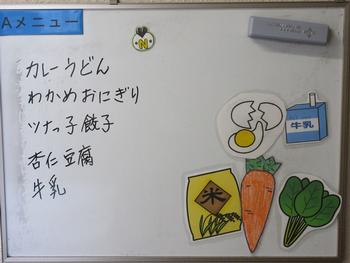 Aメニュー
N
カレーうどん
わかめおにぎり
ツナっ子餃子
杏仁豆腐
牛乳
牛乳
米